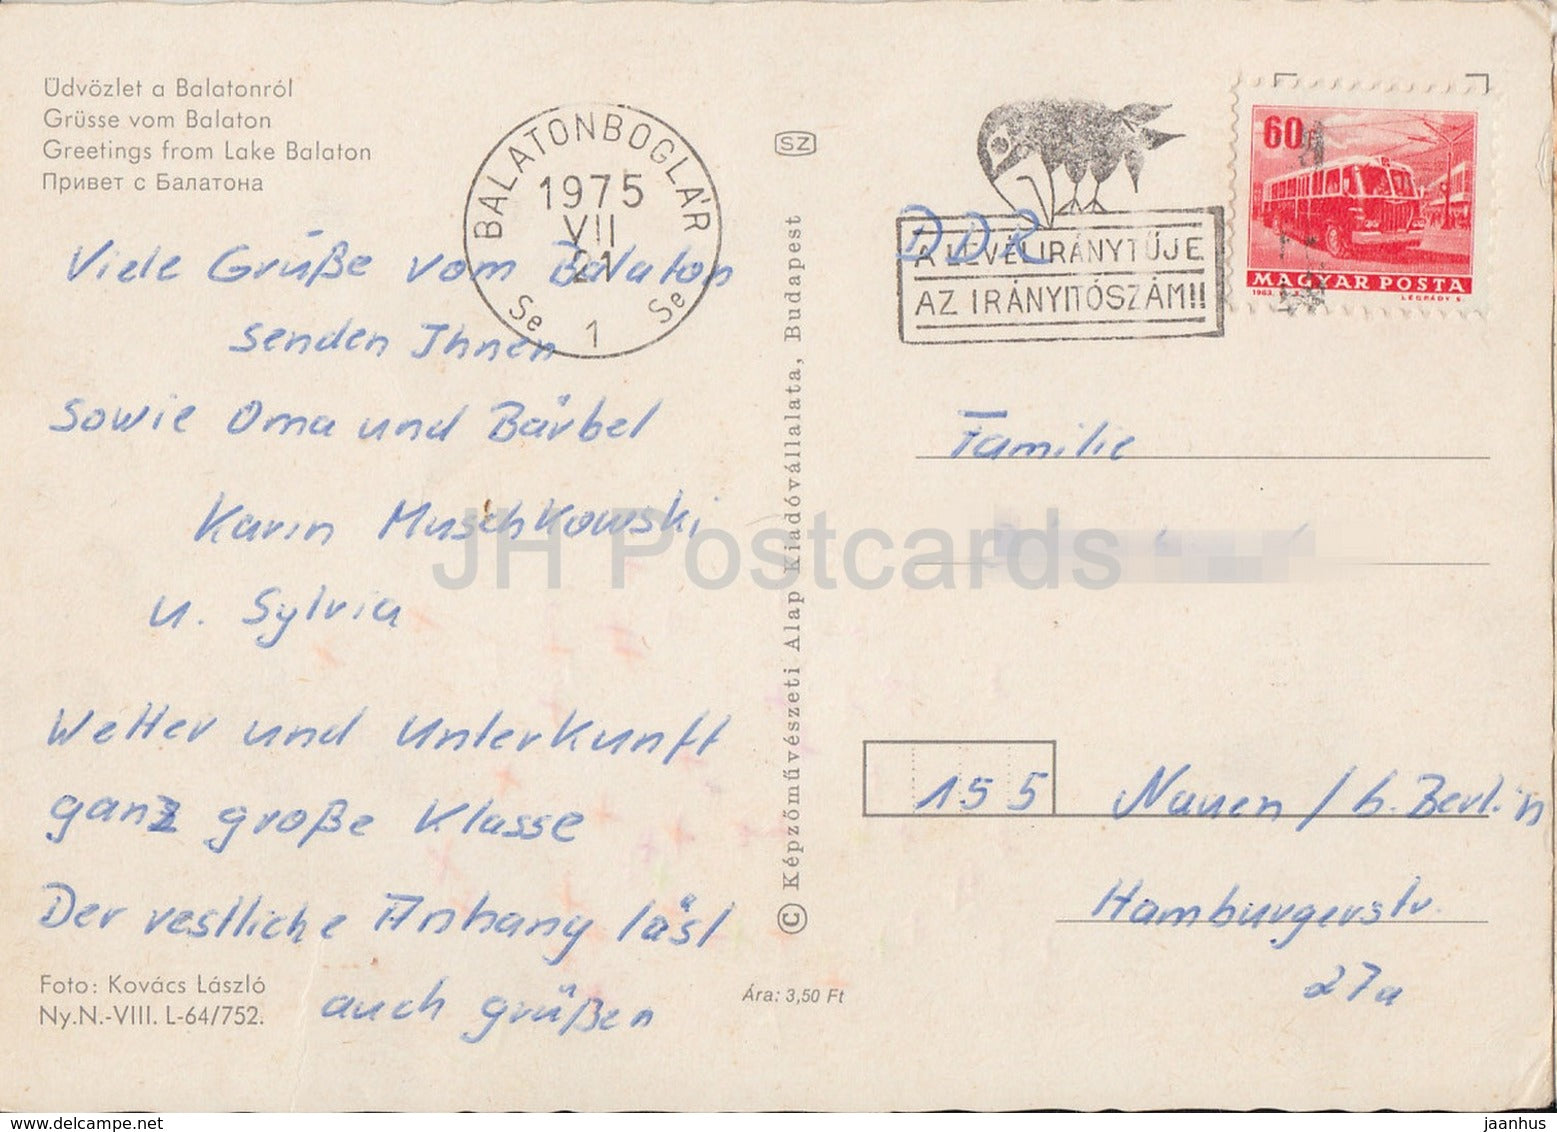 Üdvözlet a Balatonról
Grüsse vom Balaton
Greetings from Lake Balaton
Привет с Балатона
BALATONBOGLÁR
1975
VII
21
Se 1 Se
Viele Grüße vom Balaton
senden Ihnen
sowie Oma und Bärbel
Karin Muschkowski
u. Sylvia
Wetter und Unterkunft
ganz große Klasse
Der restliche Anhang läst
auch grüßen
Foto: Kovács László
Ny.N.-VIII. L-64/752.
SZ
© Képzőművészeti Alap Kiadóvállalata, Budapest
Ára: 3,50 Ft
DDR
A LEVÉL IRÁNYTŰJE
AZ IRÁNYITÓSZÁM!!
60
MAGYAR POSTA
1963.
LÉGRÁDY S.
Familie
155 Nauen / b. Berlin
Hamburgerstr.
27a
JH Postcards
delcampe.net
jaanhus